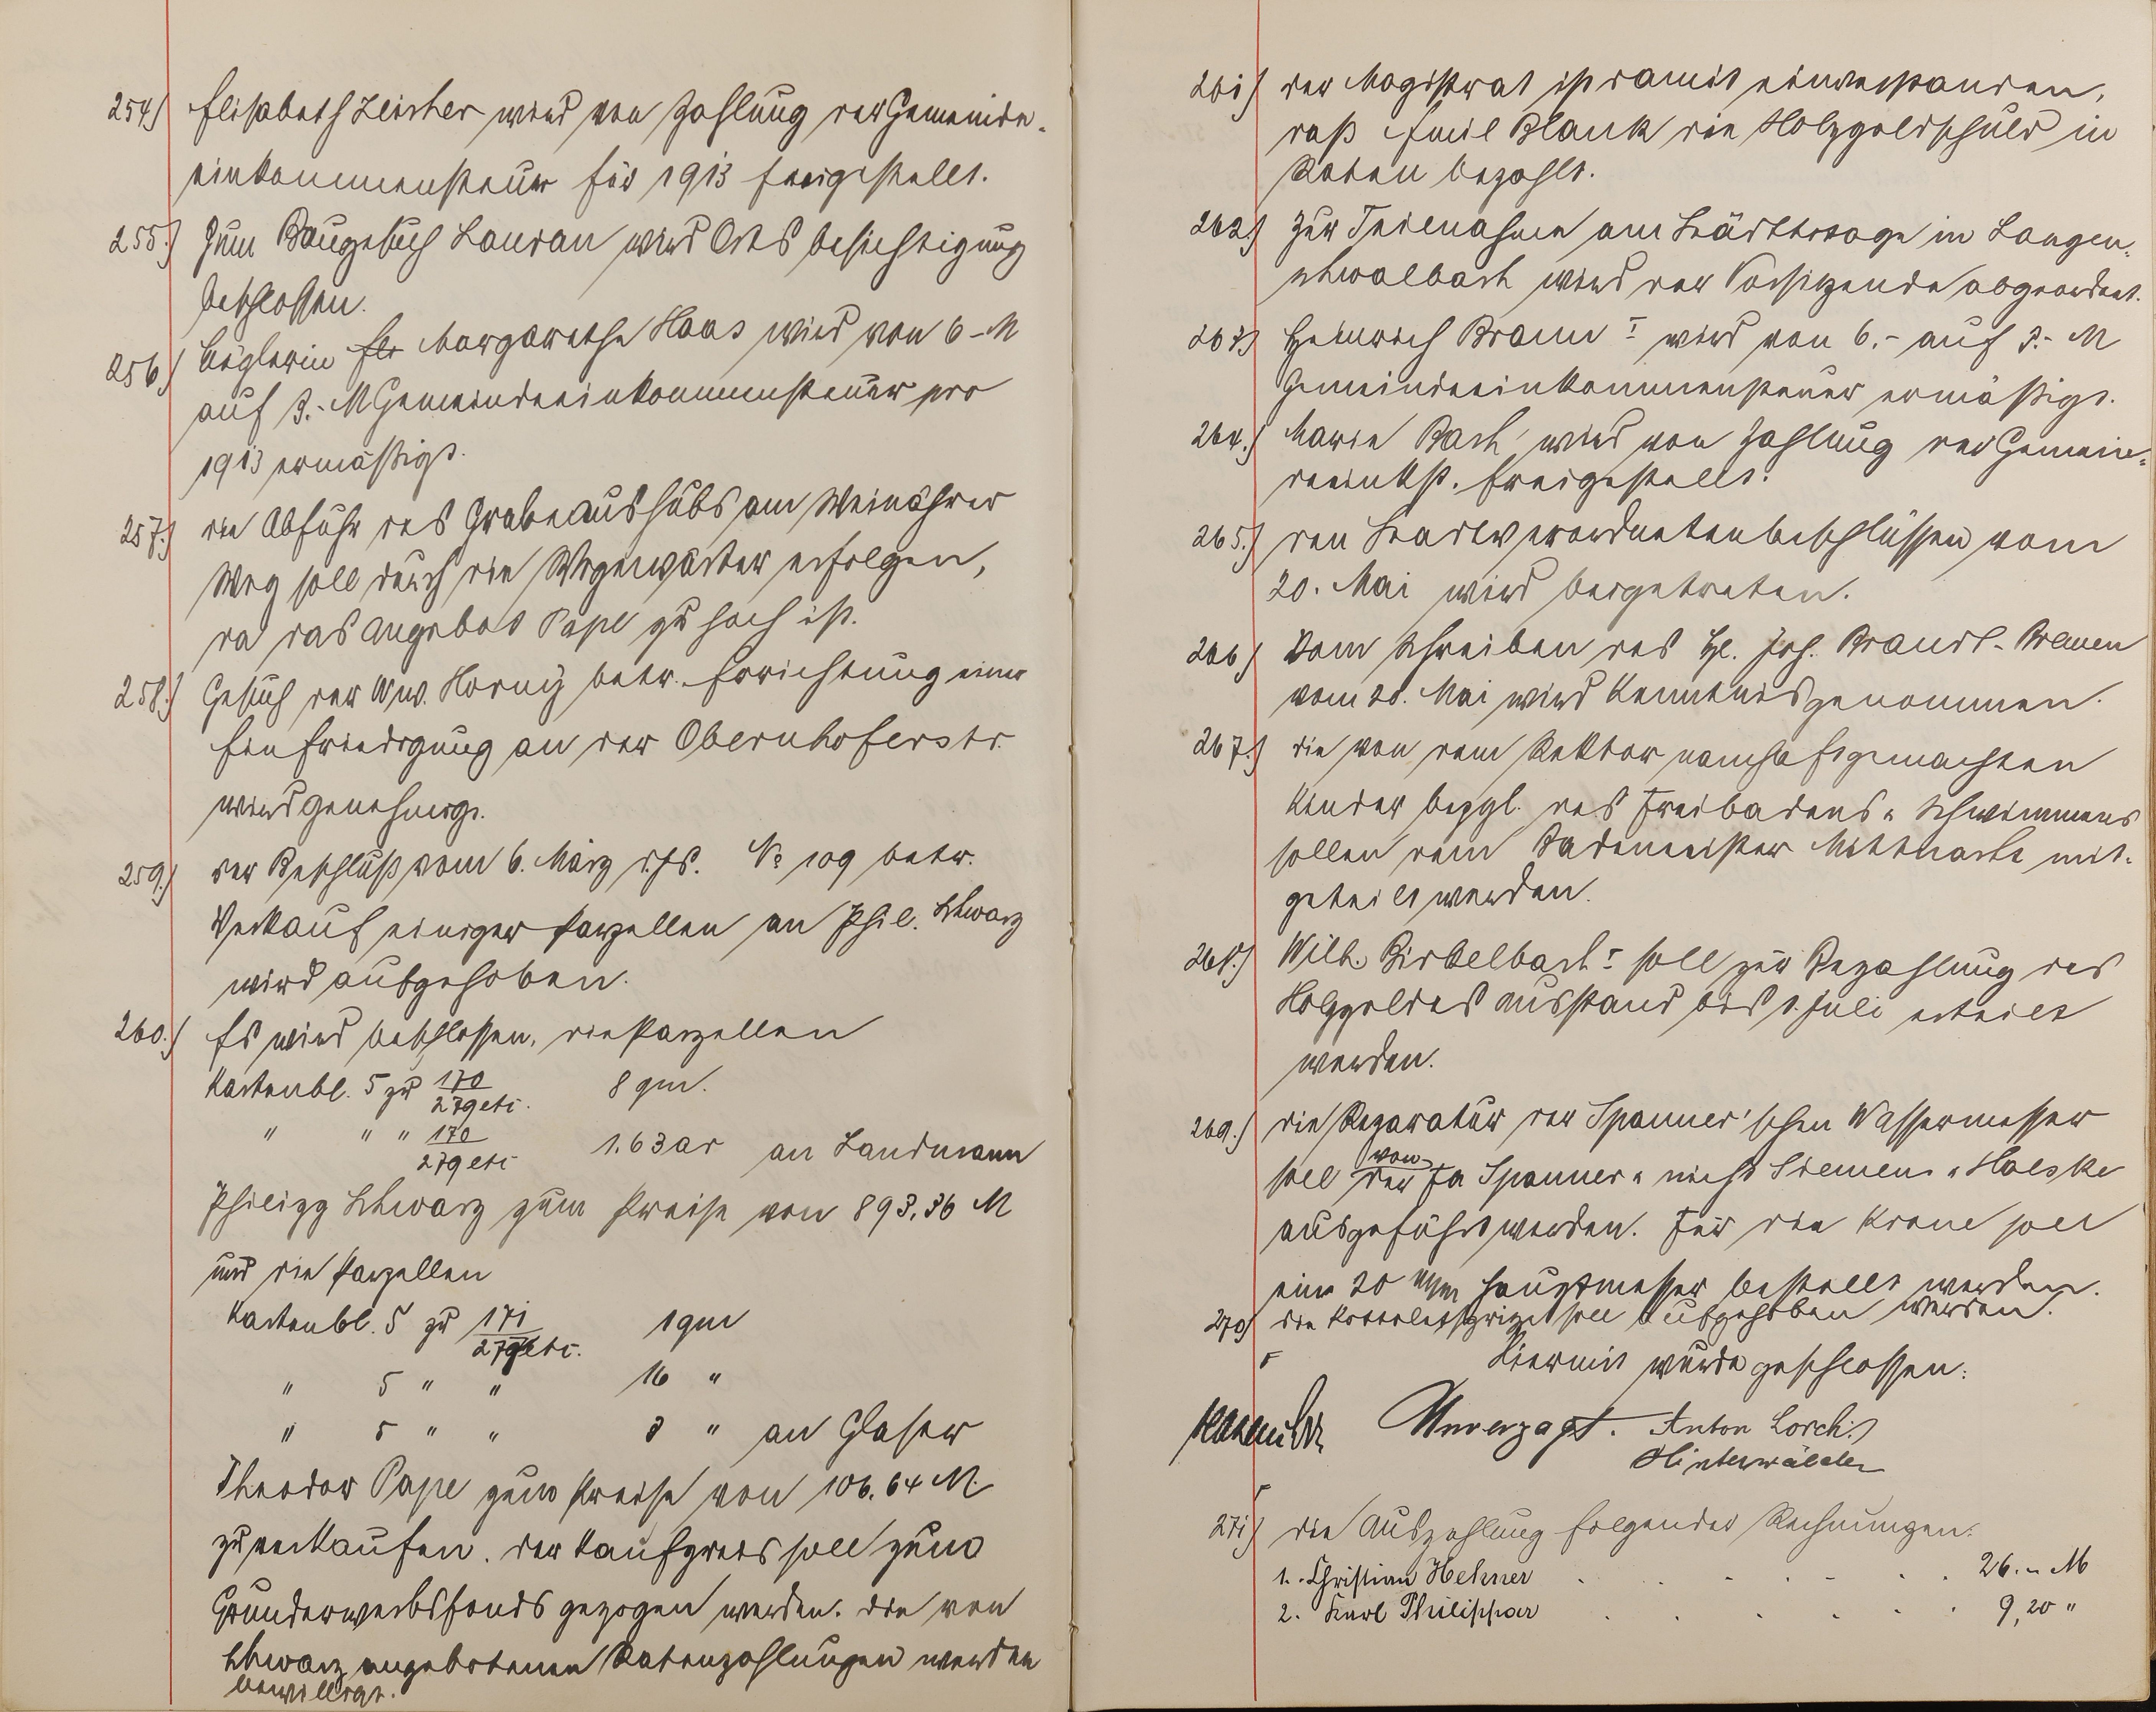 254.) Elisabeth Leicher wird von Zahlung der Gemeinde-
einkommensteuer für 1913 freigestellt.
255.) Zum Baugesuch Landau wird Ortsbesichtigung
beschlossen.
256.) Büglerin Margarethe Haas wird von 6 - M
auf 3.- M Gemeindeeinkommensteuer pro
1913 ermäßigt.
257.) die Abfuhr des Grabenaushubs am Weinährer
Weg soll durch die Wegewärter erfolgen,
da das Angebot Pape zu hoch ist.
258.) Gesuch der Ww. Horny betr. Errichtung einer
Einfriedigung an der Obernhoferstr.
wird genehmigt.
259.) der Beschluß vom 6. März d. Js. No 109 betr.
Verkauf einiger Parzellen an Phil. Schwarz
wird aufgehoben.
260.) Es wird beschlossen, die Parzellen
Kartenbl. 5 zu 170/279 etc. 8 qm.
" " " 170/279 etc 1.63 ar an Landmann
Philipp Schwarz zum Preise von 893,36 M
und die Parzellen
Kartenbl. 5 zu 171/279 etc. 1 qm
" 5 " " 16 "
" 5 " " 3 " an Glaser
Theodor Pape zum Preise von 106,64 M.
zu verkaufen. Der Kaufpreis soll zum
Grunderwerbsfonds gezogen werden. Die von
Schwarz angebotenen Ratenzahlungen werden
bewilligt.
261.) der Magistrat ist damit einverstanden,
daß Emil Blank die Holzgeldschuld in
Raten bezahlt.
262.) Zur Teilnahme am Städtetage in Langen-
schwalbach wird der Vorsitzende abgeordnet.
263.) Heinrich Braun I wird von 6.- auf 3.- M
Gemeindeeinkommensteuer ermäßigt.
264.) Marie Bach wird von Zahlung der Gemein-
deeinkst. freigestellt.
265.) den Stadtverordnetenbeschlüssen vom
20. Mai wird beigetreten.
266.) Vom Schreiben des H. Joh. Brandt-Bremen
vom 20. Mai wird Kenntnis genommen.
267.) die von dem Rektor namhaft gemachten
Kinder bezgl. des Freibadens u. Schwimmens
sollen dem Bademeister Mittnacht mit-
geteilt werden.
268.) Wilh. Birkelbach I soll zur Bezahlung des
Holzgeldes Ausstand bis 1. Juli erteilt
werden.
269.) die Reparatur der Spanner'schen Wassermesser
soll von der Fa Spanner u. nicht Siemens u. Halske
ausgeführt werden. Für die Krone soll
ein 20 mm Hauptmesser bestellt werden.
270.) die soll aufgehoben werden.
Hiermit wurde geschlossen:
Unverzagt. Anton Lorch.
Hinterwälder
271.) die Auszahlung folgender Rechnungen:
1. Christian Hehner . . . . . . . 26.- M
2. Karl Philippar . . . . . . 9,20 "